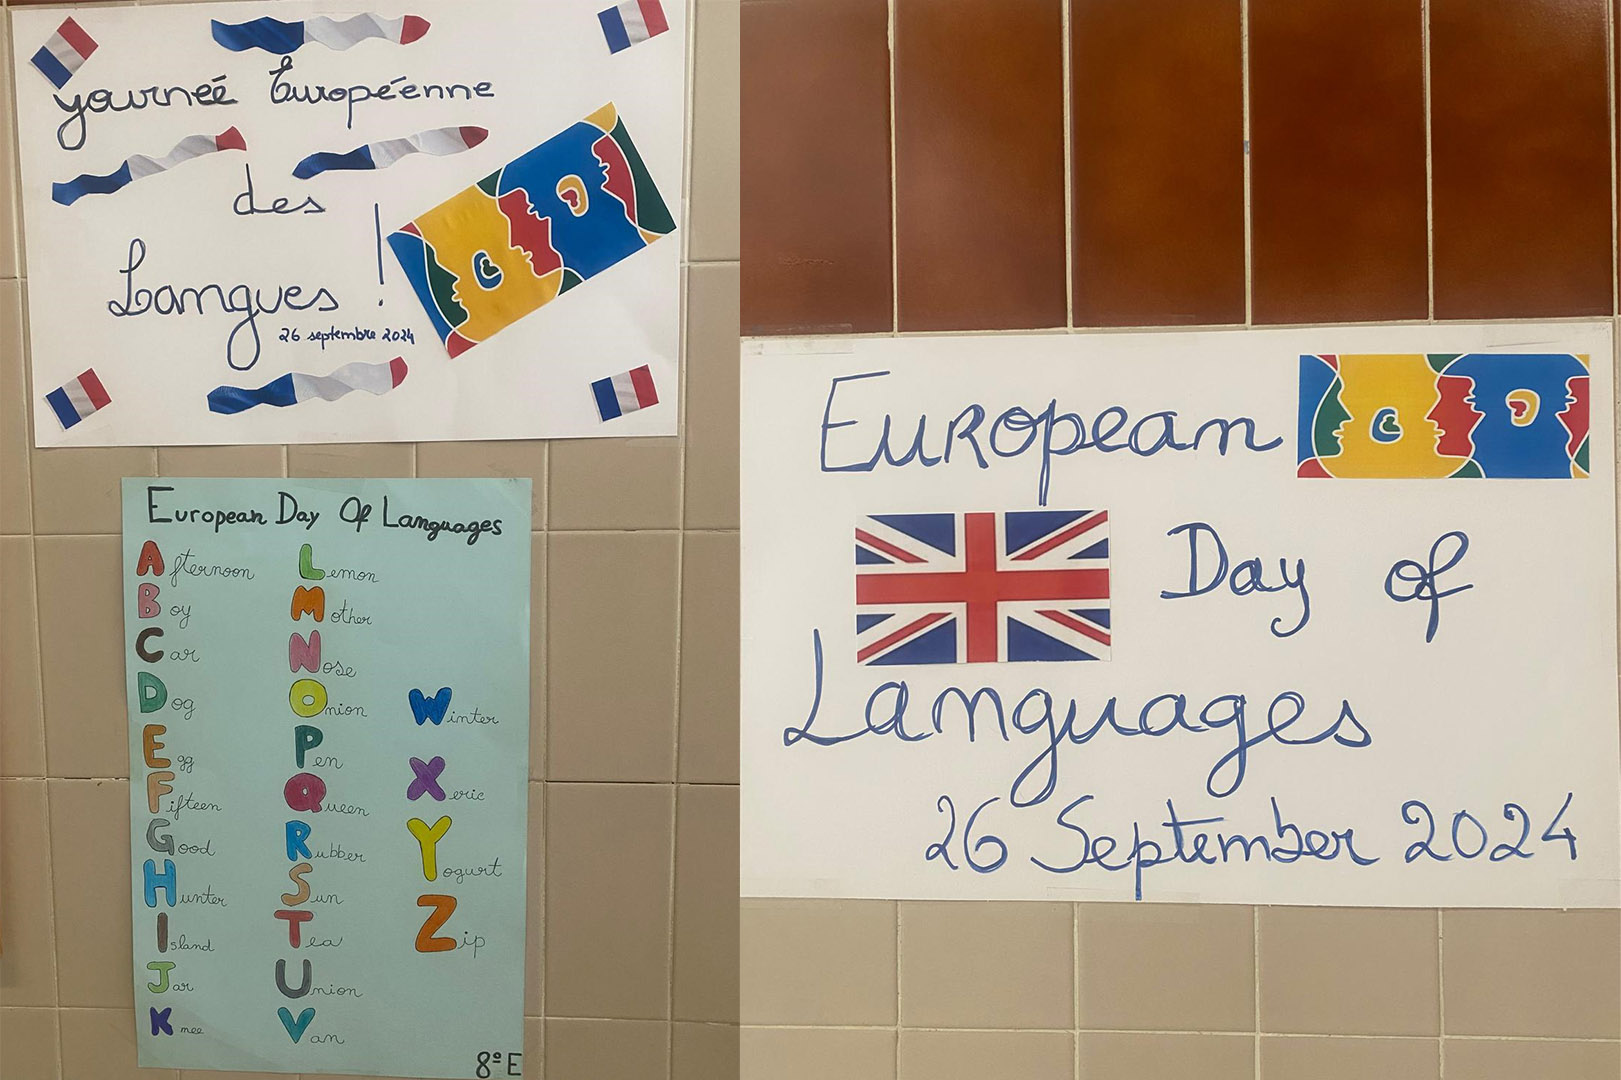 Journeé Européenne
des
Langues !
26 septembre 2024
European Day Of Languages
Afternoon
Boy
Car
Dog
Egg
Fifteen
Good
Hunter
Island
Jar
Kmee
Lemon
Mother
Nose
Onion
Pen
Queen
Rubber
Sun
Tea
Union
Van
Winter
Xeric
Yogurt
Zip
8º E
European
Day of
Languages
26 September 2024